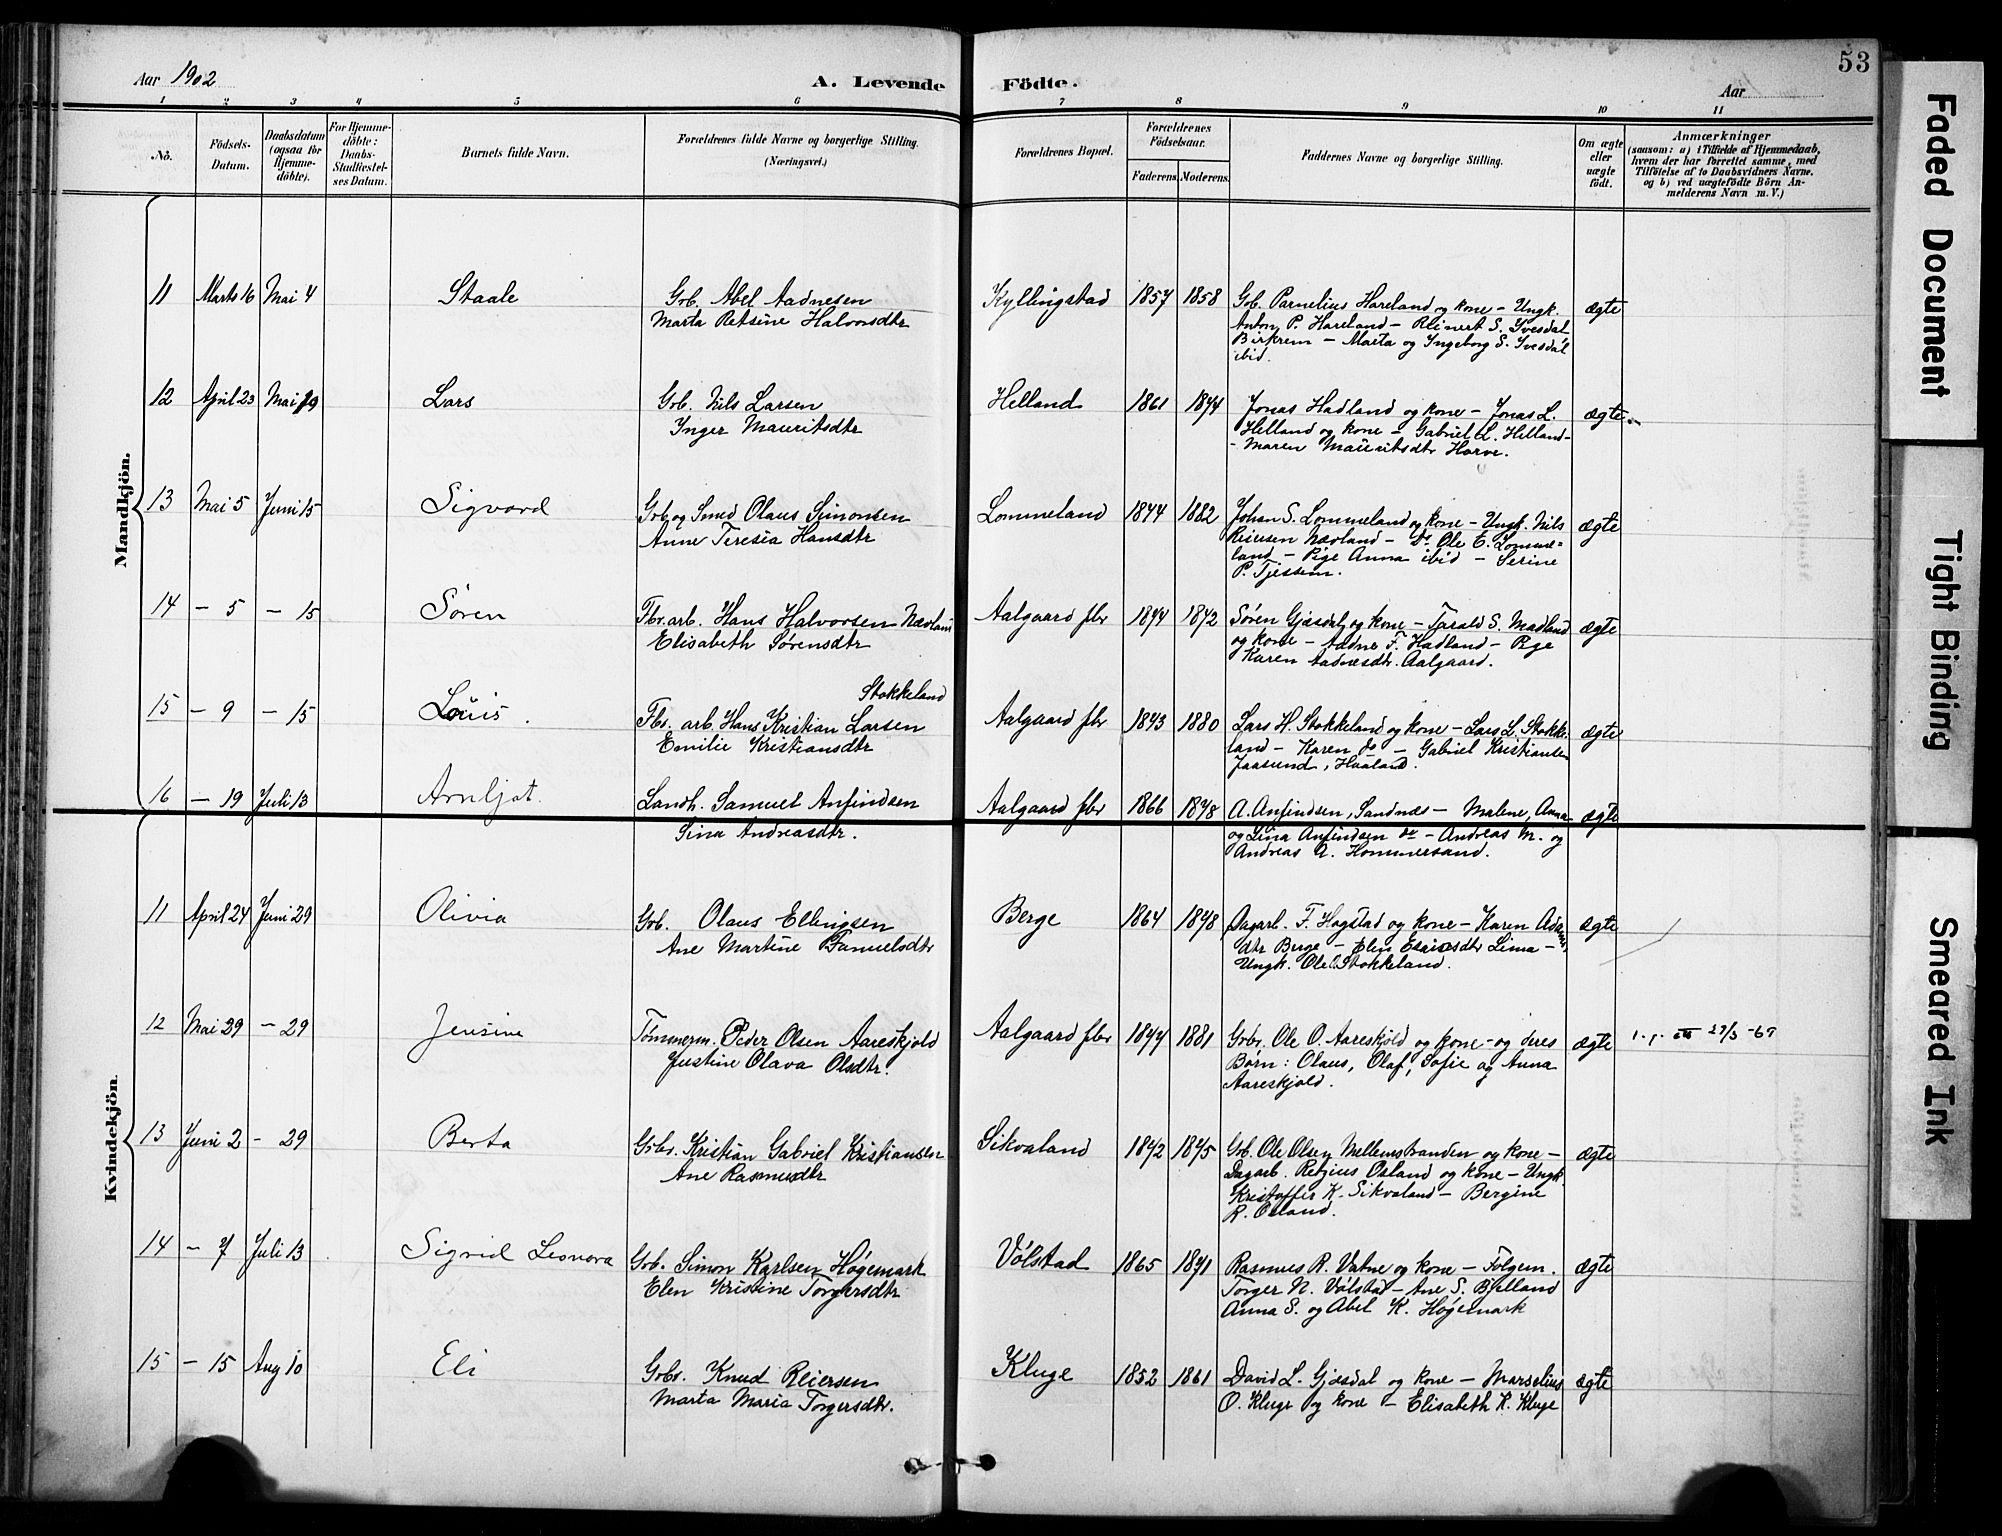 53
Aar 1902
A. Levende Födte.
Aar
1 2 3 4 5 6 7 8 9 10 11
No.
Födsels-Datum.
Daabsdatum (ogsaa for Hjemmedöbte).
For Hjemmedöbte: Daabs-Stadfæstelses Datum.
Barnets fulde Navn.
Forældrenes fulde Navne og borgerlige Stilling.
(Næringsvei.)
Forældrenes Bopæl.
Forældrenes Födselsaar.
Faderens. Moderens.
Faddernes Navne og borgerlige Stilling.
Om ægte eller uægte födt.
Anmærkninger
(saasom: a) i Tilfælde af Hjemmedaab,
hvem der har forrettet samme, med
Tilföielse af to Daabsvidners Navne.
og b) ved uægtefödte Börn An-
melderens Navn m. V.)
Mandkjön.
11 Marts 16 Mai 4 Staale Gb. Abel Aadnesen Kyllingstad 1857 1858 Gb. Parnelius Hareland og kone – Ungk. ægte
Marta Retsine Halvorsdtr Anton P. Hareland – Reinert S. Ivesdal
Birkrem – Marta og Ingeborg S. Ivesdal
ibid.
12 April 23 Mai 19 Lars Gb. Nils Larsen Helland 1861 1874 Jonas Hadland og kone – Jonas L. ægte
Inger Mauritsdtr Helland og kone – Gabriel L. Helland –
– Maren Mauritsdtr Horve.
13 Mai 5 Juni 15 Sigvard Gb og Smed Olaus Simonsen Lommeland 1874 1882 Johan S. Lommeland og kone – Ungk. Nils ægte
Anne Teresia Hansdtr Reiersen Nævland – Do Ole E. Lomme=
land – Pige Anna ibid – Serine
P. Tjessem.
14 – 5 – 15 Søren Fbr. arb. Hans Halvorsen Nævland Aalgaard fbr 1874 1872 Søren Gjesdal og kone – Tarald S. Madland ægte
Elisabeth Sørensdtr og kone – Aadne F. Hadland – Pige
Karen Aadnesdtr. Aalgaard.
Stokkeland
15 – 9 – 15 Louis. Fbr. arb. Hans Kristian Larsen Aalgaard fbr 1873 1880 Lars H. Stokkeland og kone – Lars L. Stokke- ægte
Emilie Kristiansdtr land – Karen do – Gabriel Kristiansen
Jaasund, Haaland.
16 – 19 Juli 13 Arnljot. Landh. Samuel Anfindsen Aalgaard fbr 1866 1878 A. Anfindsen, Sandnæs – Malene, Anna ægte
Sina Andreasdtr. og Lina Anfindsen do – Andreas M. og
Andreas A. Hommersand.
Kvindekjön.
11 April 24 Juni 29 Olivia Gb. Olaus Ellingsen Berge 1864 1878 Dagarb. F. Hogstad og kone – Karen Adams ægte
Ane Martine Samuelsdtr dtr Berge – Elen Lima –
Ungk. Ole O. Stokkeland.
12 Mai 29 – 29 Jensine Tømmerm. Peder Olsen Aareskjold Aalgaard fbr 1874 1881 Gbr. Ole O. Aareskjold og kone – og deres ægte 29/3 -67
Justine Olava Olsdtr. Børn: Olaus, Olaf, Sofie og Anna
Aareskjold.
13 Juni 2 – 29 Berta Gbr. Kristian Gabriel Kristiansen Sikvaland 1872 1875 Gb. Ole Olsen Mellemstranden og kone – ægte
Ane Rasmusdtr Dagarb. Retzius Osland og kone – Ungk.
Kristoffer K. Sikvaland – Bergine
R. Osland.
14 – 7 Juli 13 Sigrid Leonora Gb. Simon Karlsen Høgemark Vølstad 1865 1871 Rasmus R. Vatne og kone – Følgem. ægte
Elen Kristine Torgersdtr Torger N. Vølstad – Ane S. Bjelland
Anna S. og Abel K. Høgemark
15 – 15 Aug 10 Eli Gbr. Knud Reiersen Kluge 1852 1861 David L. Gjesdal og kone – Marselius ægte
Marta Maria Torgersdtr. O. Kluge og kone – Elisabeth K. Kluge
Faded Document
Tight Binding
Smeared Ink